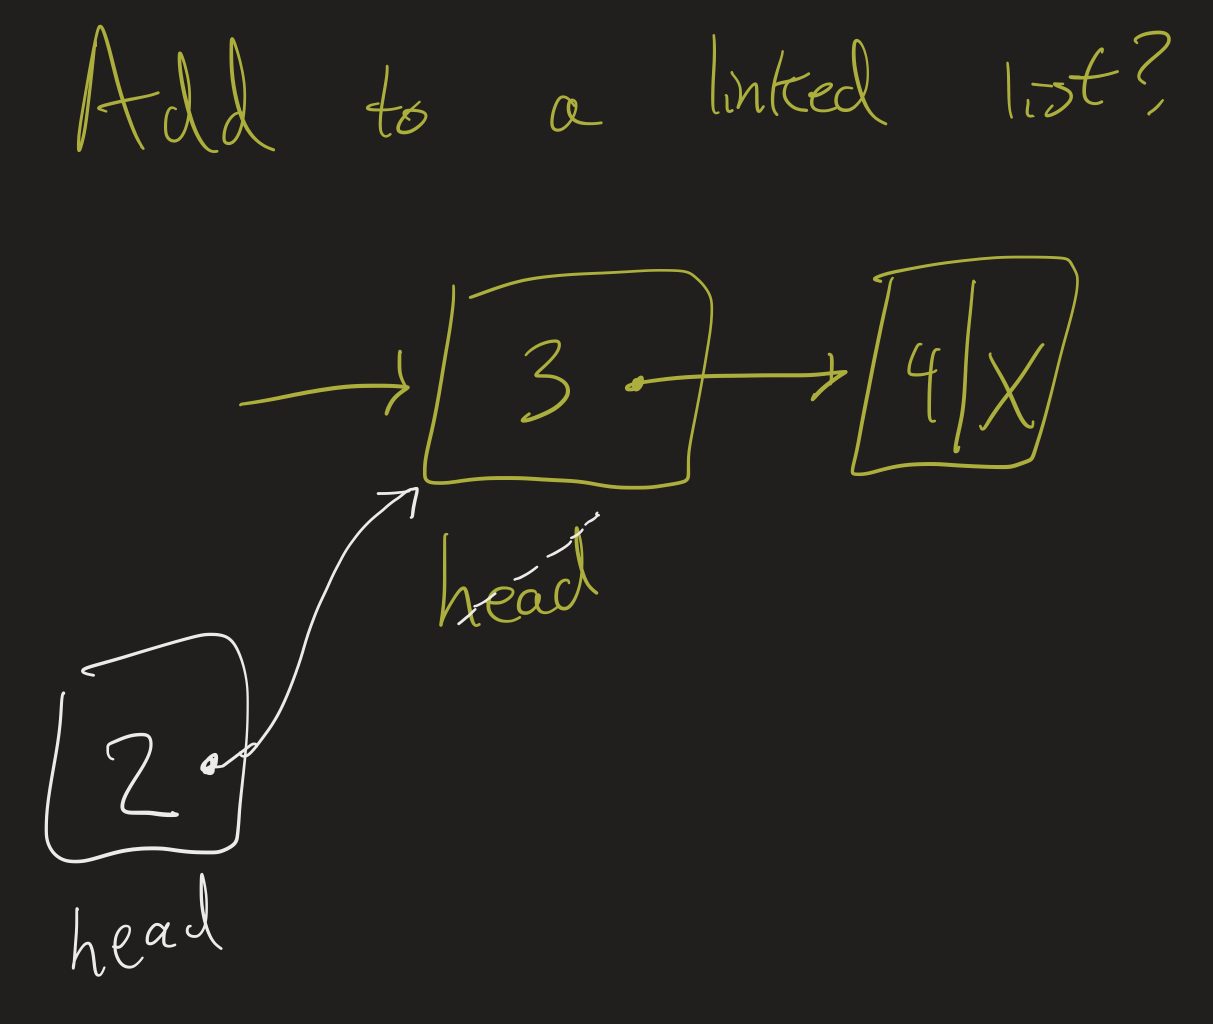 Add to a linked list?
3 4 X
head
2
head